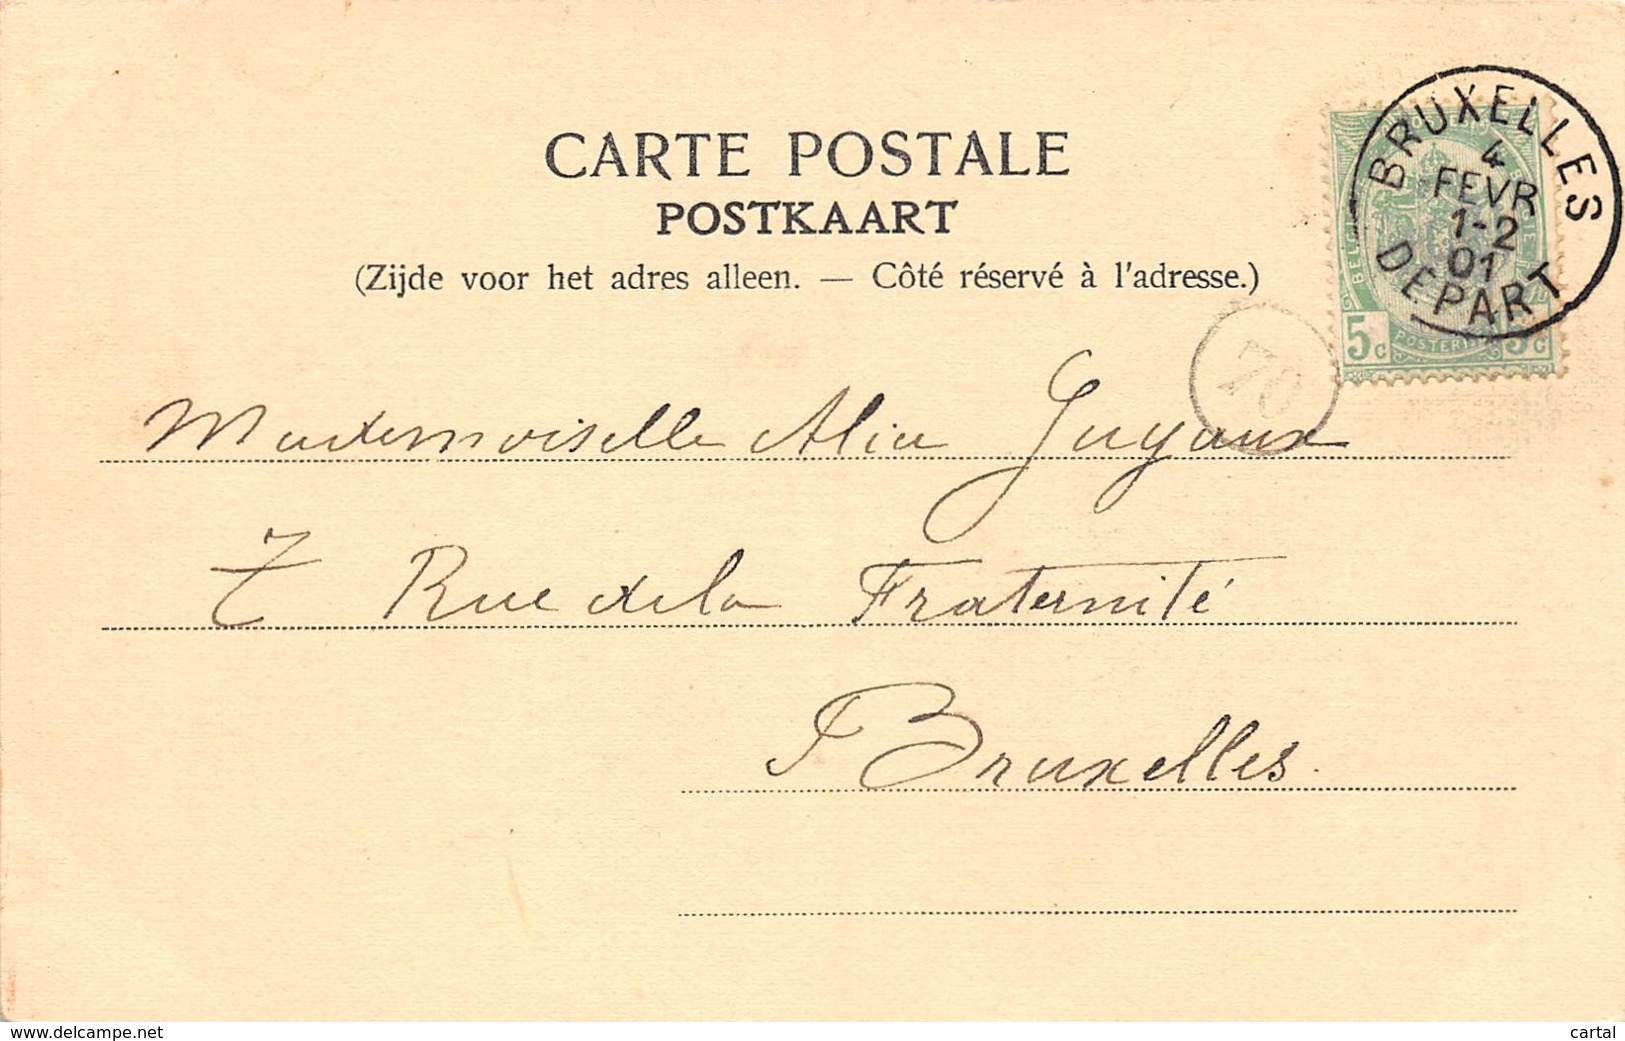 CARTE POSTALE
POSTKAART
(Zijde voor het adres alleen. — Côté réservé à l'adresse.)
BRUXELLES
4
FEVR
1-2
01
DEPART
5c 5c
70
Mademoiselle Guyaux
7 Rue de la Fraternité
Bruxelles.
www.delcampe.net
cartal